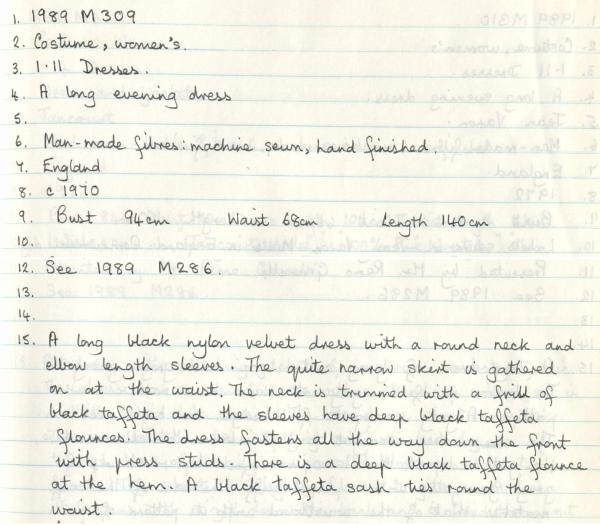 1. 1989 M309
2. Costume, women's.
3. 1.11 Dresses.
4. A long evening dress
5.
6. Man-made fibres: machine sewn, hand finished.
7. England
8. c 1970
9. Bust 94cm Waist 68cm Length 140cm
10.
12. See 1989 M286.
13.
14.
15. A long black nylon velvet dress with a round neck and
elbow length sleeves. The quite narrow skirt is gathered
on at the waist. The neck is trimmed with a frill of
black taffeta and the sleeves have deep black taffeta
flounces. The dress fastens all the way down the front
with press studs. There is a deep black taffeta flounce
at the hem. A black taffeta sash ties round the
waist.